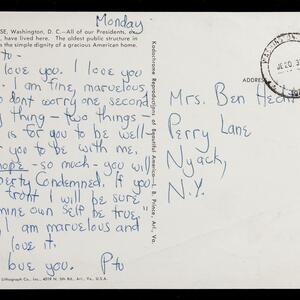 Monday
SE, Washington, D. C.—All of our Presidents, ex
, have lived here. The oldest public structure in
s the simple dignity of a gracious American home.
to-
love you. I love you
. I am fine, marvelous
o dont worry one second
y thing - two things -
is for you to be well
r you to be with me.
hope - so much - you will
perty Condemned. If you
front I will be sure
mine own self be true.
I am marvelous and
love it.
love you. Ptu
Lithograph Co., Inc. — 4019 N. 5th Rd., Arl., Va., U.S.A.
Kodachrome Reproductions of Beautiful America—L. B. Prince, Arl., Va.
WASHINGTON
ADDRE
Mrs. Ben Hecht
Perry Lane
Nyack,
N.Y.